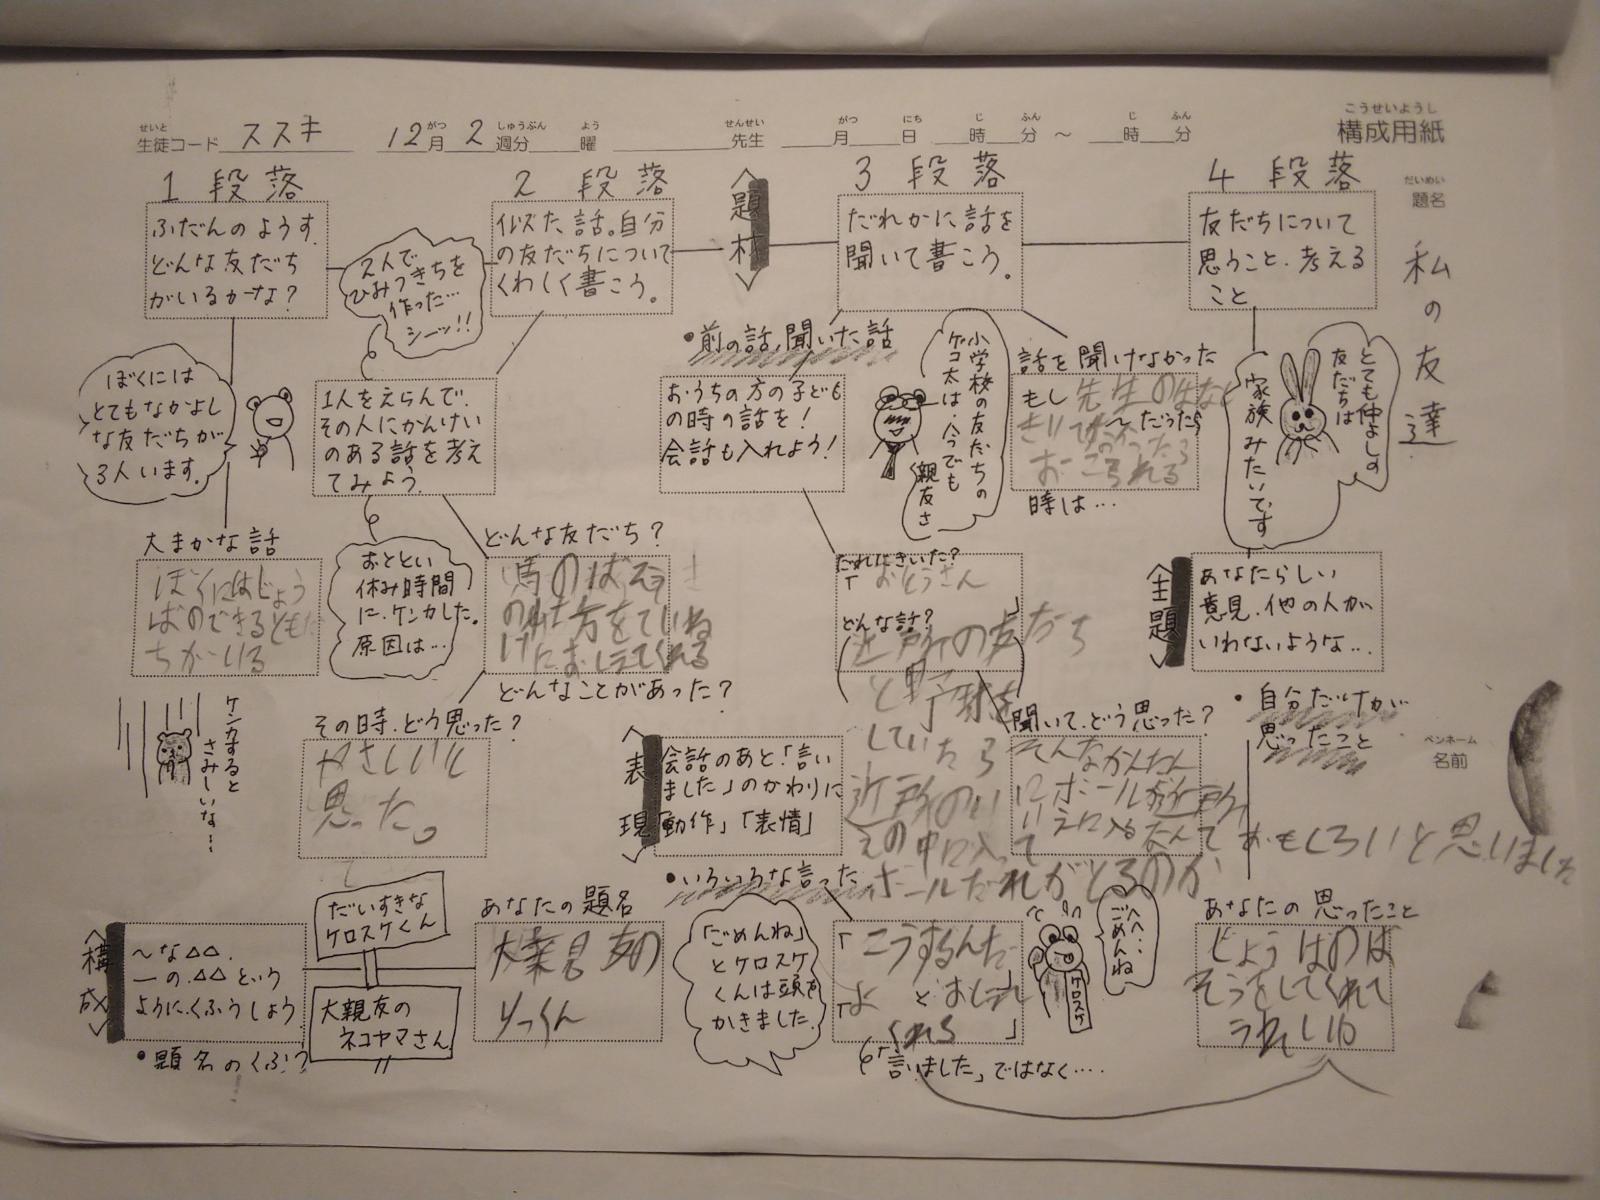 こうせいようし
構成用紙
せいと
生徒コード ススキ
がつ しゅうぶん よう
12月 2週分 曜
せんせい
先生
がつ にち じ ふん じ ふん
月 日 時 分 ～ 時 分
だいめい
題名
私の友達
ペンネーム
名前
1 段落
ふだんのようす.
どんな友だち
がいるかな?
ぼくには
とてもなかよし
な友だちが
3人います。
大まかな話
ぼくにはじょう
ばのできるともだ
ちがいる
ケンカすると
さみしいな…
2 段落
似た話。自分
の友だちについて
くわしく書こう。
2人で
ひみつきちを
作った…
シーッ!!
1人をえらんで.
その人にかんけい
のある話を考え
てみよう.
おととい
休み時間
に.ケンカした。
原因は…
どんな友だち?
馬のばそう
の仕方をていね
いにおしえてくれる
どんなことがあった?
その時.どう思った?
やさしいと
思った。
〈題材〉
3 段落
だれかに話を
聞いて書こう。
•前の話,聞いた話
おうちの方の子ども
の時の話を!
会話も入れよう!
小学校の友だちの
ゲコ太は、今でも
親友さ
話を聞けなかった
もし
～だったら
時は…
だれにきいた?
「おとうさん
」
どんな話?
近所の友だち
と野球を
していたら
近所のい
えの中に入って
ボールだれがとるのか
聞いて.どう思った?
そんなかんたん
にボールが近所
いえに入るなんて おもしろいと思いました
4 段落
友だちについて
思うこと.考える
こと
とても仲よしの
友だちは
家族みたいです
〈主題〉
あなたらしい
意見.他の人が
いわないような…
•自分だけが
思ったこと
あなたの思ったこと
じょうばのば
そうをしてくれて
うれしいな
〈表現〉
会話のあと「言い
ました」のかわりに
「動作」「表情」
•いろいろな言った
「ごめんね」
とケロスケ
くんは頭を
かきました.
「こうするんだ
よ」とおしえて
くれる
「言いました」ではなく….
へへ…
ごめんね
ケロスケ
〈構成〉
～な△△.
―の.△△という
ように.くふうしよう
•題名のくふう
だいすきな
ケロスケくん
大親友の
ネコヤマさん
あなたの題名
りっくん